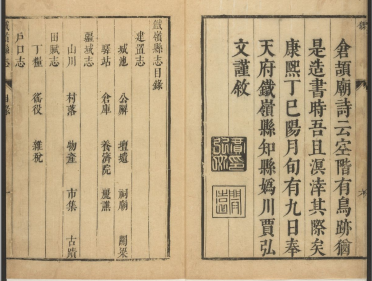 倉頡廟詩云空階有鳥跡猶
是造書時吾且溟涬其際矣
康熙丁巳陽月旬有九日奉
天府鐵嶺縣知縣媯川賈弘
文謹敘
鐵嶺縣志目錄
建置志
城池 公廨 壇壝 祠廟 關梁
驛站 倉庫 養濟院
疆域志
山川 村落 物產 市集 古蹟
田賦志
丁糧 徭役 雜稅
戶口志